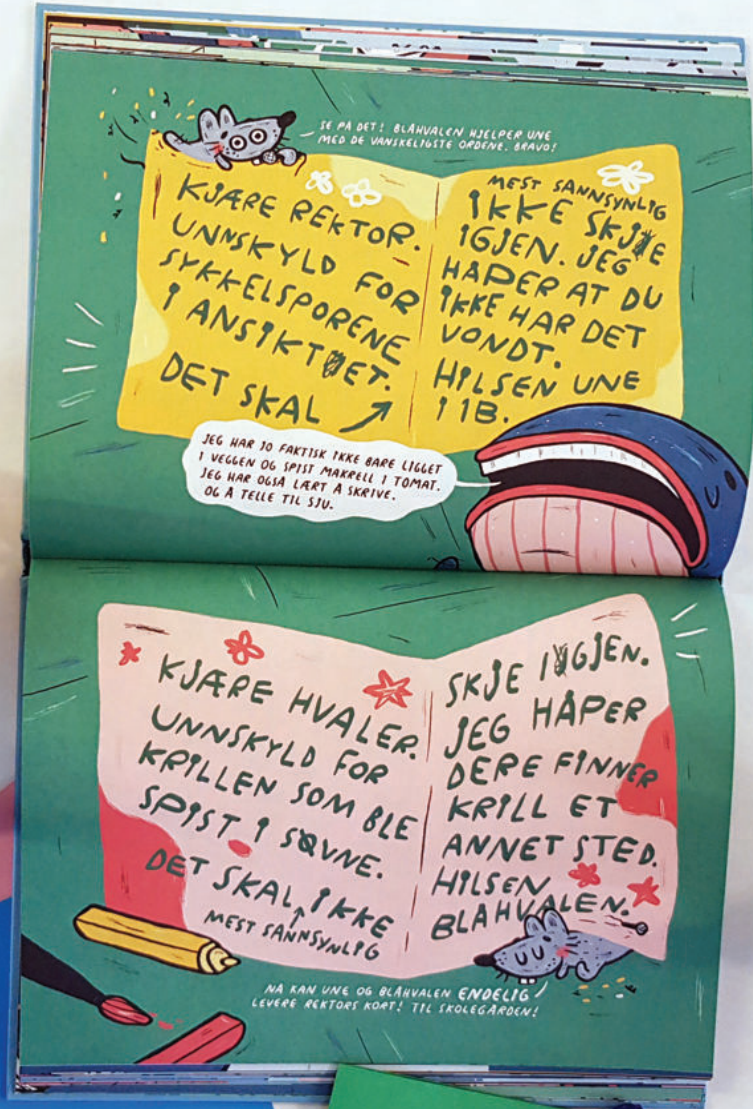 SE PÅ DET! BLÅHVALEN HJELPER UNE
MED DE VANSKELIGSTE ORDENE. BRAVO!
KJÆRE REKTOR.
UNNSKYLD FOR
SYKKELSPORENE
I ANSIKTET.
DET SKAL
MEST SANNSYNLIG
IKKE SKJE
IGJEN. JEG
HÅPER AT DU
IKKE HAR DET
VONDT.
HILSEN UNE
I 1B.
JEG HAR JO FAKTISK IKKE BARE LIGGET
I VEGGEN OG SPIST MAKRELL I TOMAT.
JEG HAR OGSÅ LÆRT Å SKRIVE.
OG Å TELLE TIL SJU.
KJÆRE HVALER.
UNNSKYLD FOR
KRILLEN SOM BLE
SPIST I SØVNE.
DET SKAL IKKE
MEST SANNSYNLIG
SKJE IGJEN.
JEG HÅPER
DERE FINNER
KRILL ET
ANNET STED.
HILSEN
BLÅHVALEN.
NÅ KAN UNE OG BLÅHVALEN ENDELIG
LEVERE REKTORS KORT! TIL SKOLEGÅRDEN!